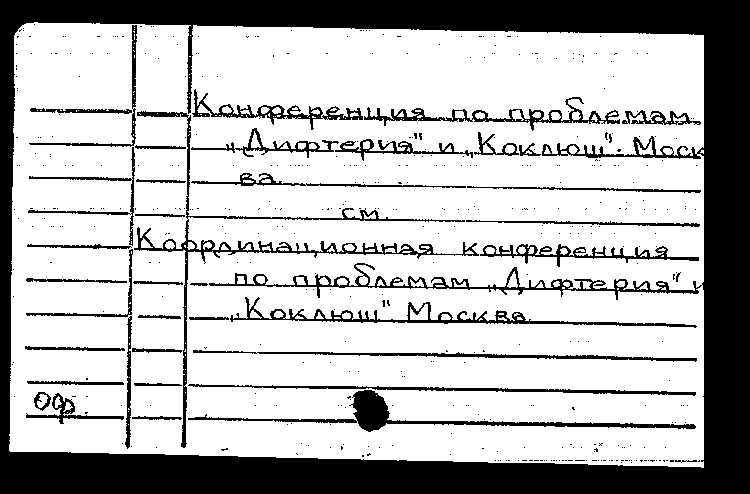 Конференция по проблемам
„Дифтерия" и „Коклюш". Моск
ва
см.
Координационная конференция
по проблемам „Дифтерия" и
„Коклюш" Москва